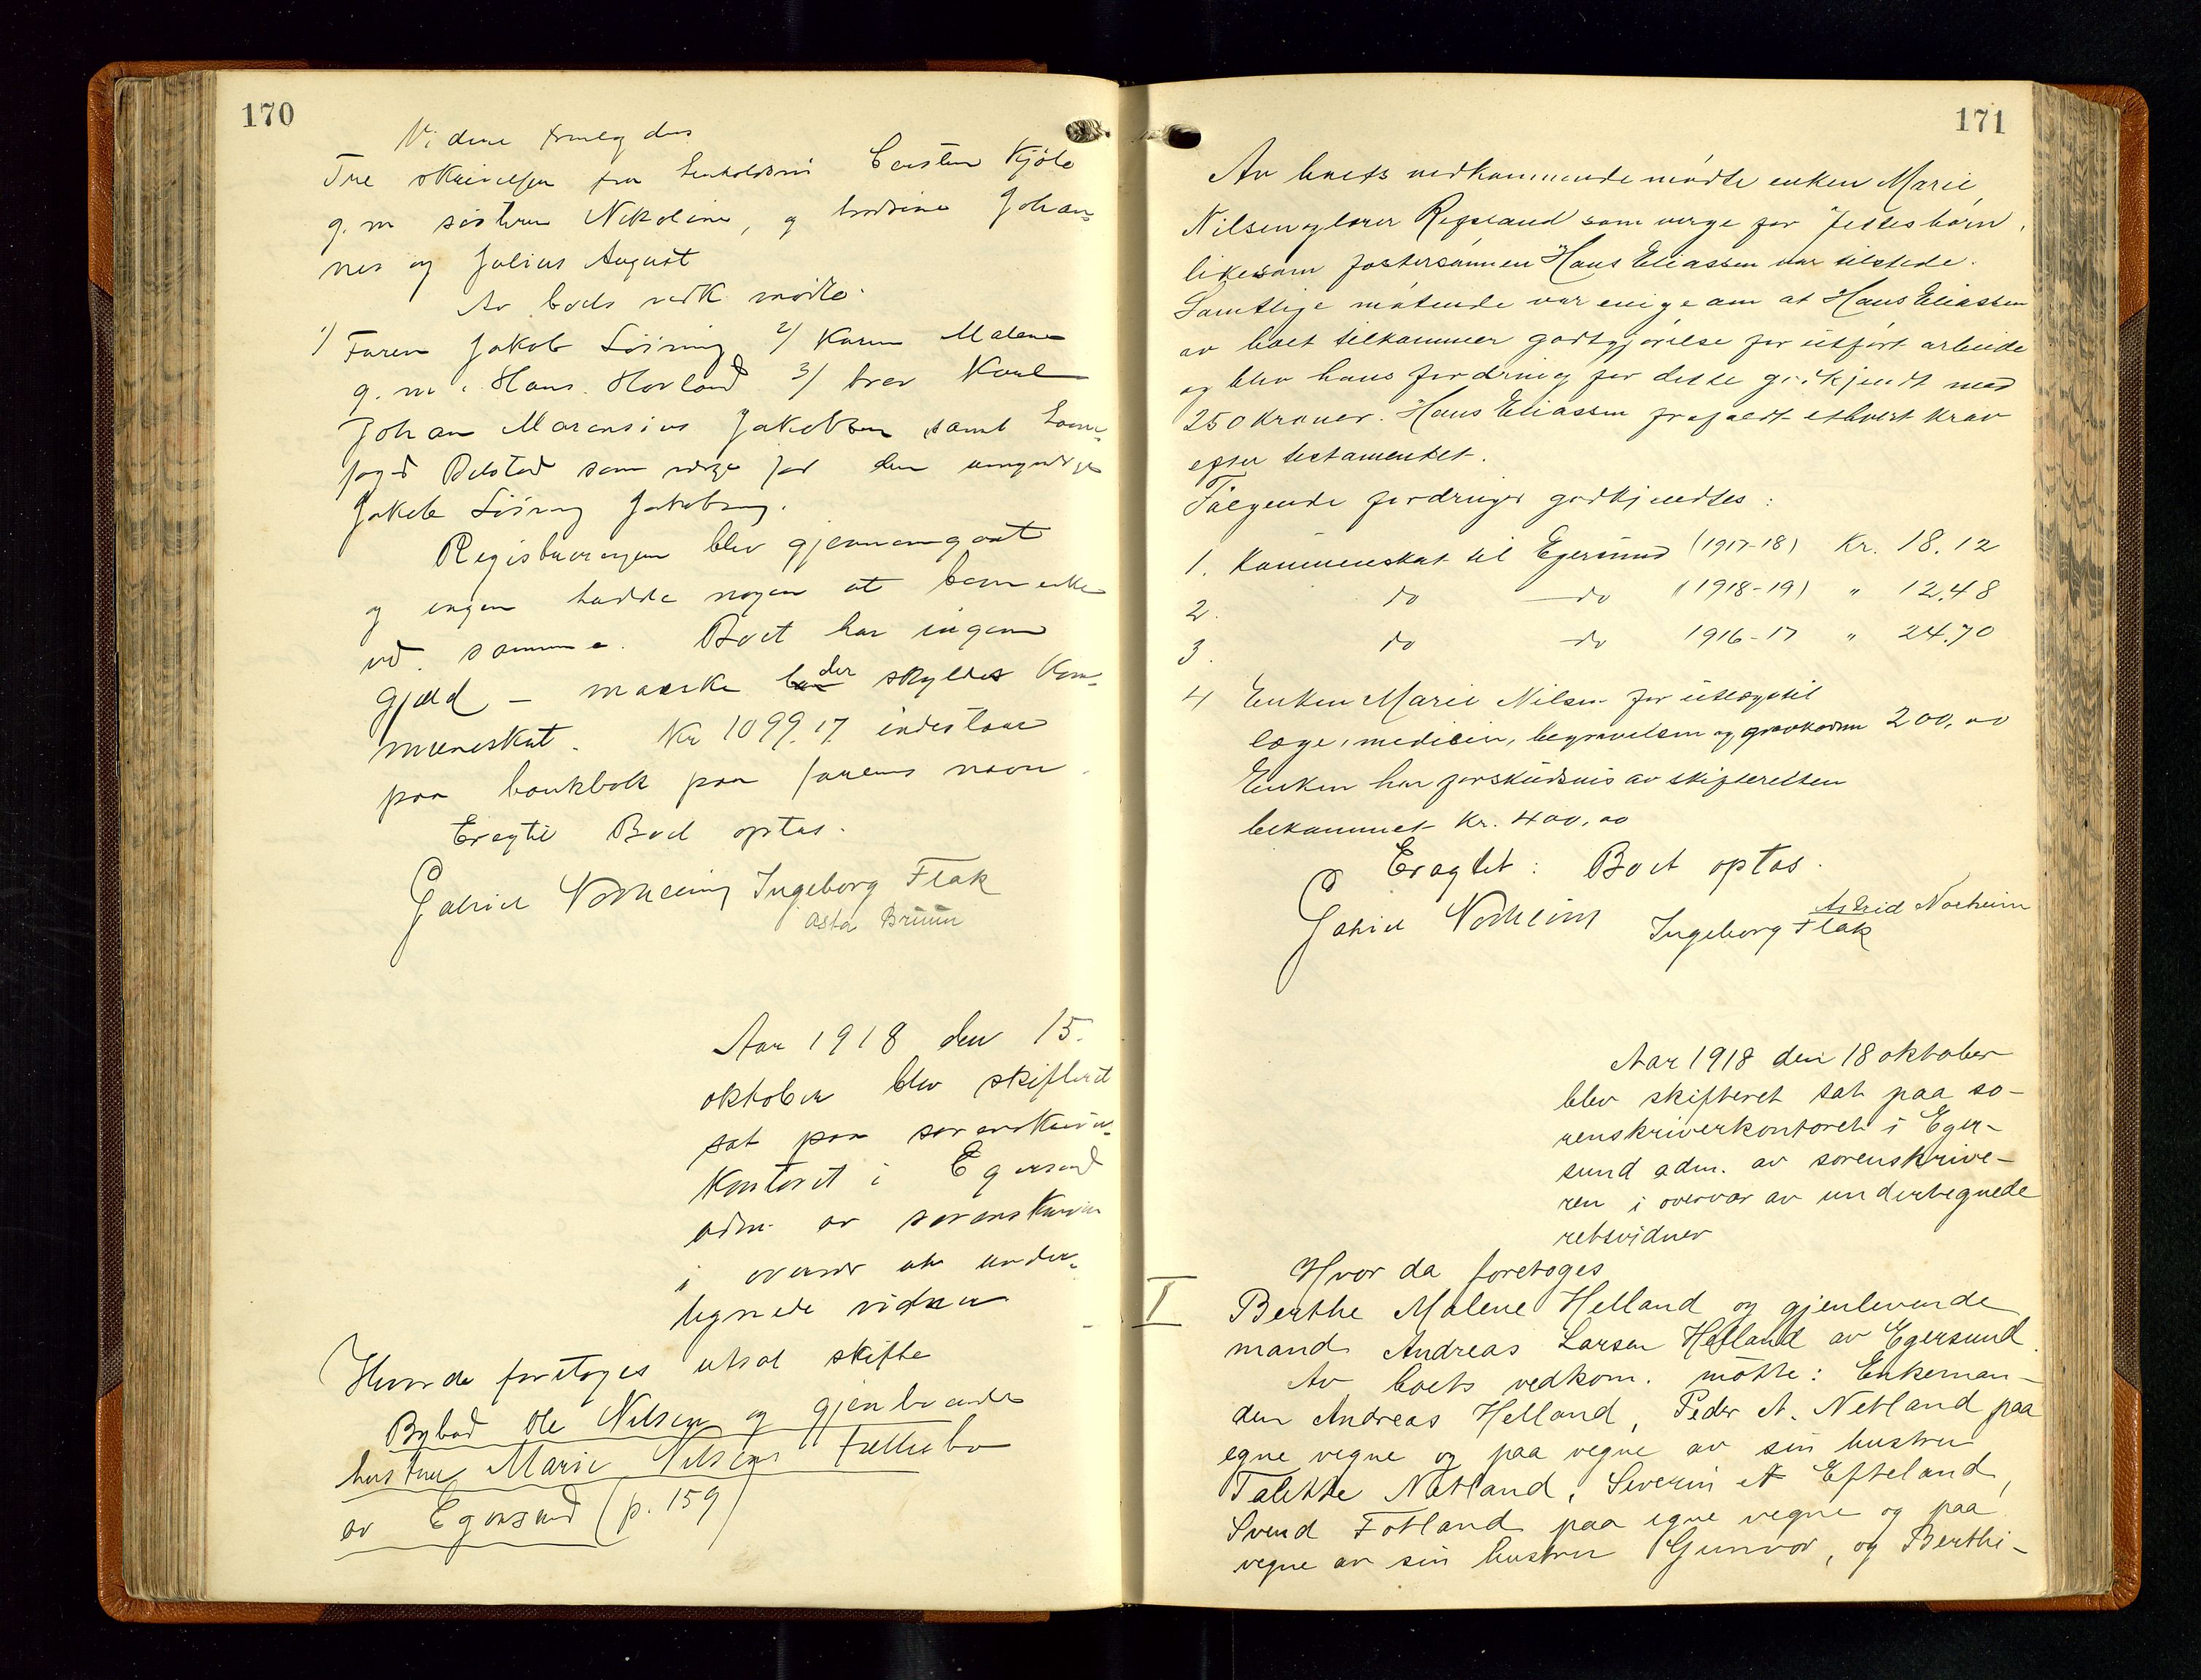 170
Videre fremlagdes
Tre skrivelser fra Carsten Kjölo
g. m. søsteren Nikoline, og brødrene Johan-
nes og Julius August
Av boets vedk. mødte:
1/ Faren Jakob 2/ Karen Malene
g. m. Hans Hovland 3/ bror Karl
Johan Marensius Jakobsen samt
som verge for den umyndige
Jakob
Registreringen blev gjennemgaat
og ingen hadde nogen at bemerke
ved samme. Boet har ingen
gjæld — maaske der skyldes kom-
muneskat. Kr 1099.17 indestaar
paa bankbok paa farens navn.
Eragtet Boet optas.
Gabriel Nordheim Ingeborg Flak
Asta Bruun
Aar 1918 den 15.
oktober blev skifteret
sat paa sorenskriver-
kontoret i Egersund
adm. av sorenskriveren
i overvær av under-
tegnede vidner
Hvor da foretoges utsat skifte
Bybud Ole Nilsen og gjenlevende
hustru Marie Nilsens fællesbo
av Egersund (p. 159)
171
Av boets vedkommende mødte enken Marie
Nilsen og lærer Regeland som verge for fellesbørn,
likesom fostersønnen Hans Eliassen var tilstede.
Samtlige møtende var enige om at Hans Eliassen
av boet tilkommer godtgjørelse for utført arbeide
og blev hans fordring for dette godkjendt med
250 kroner. Hans Eliassen frafaldt ethvert krav
efter testamentet.
Følgende fordringer godkjendtes:
1. Kommuneskat til Egersund (1917-18) Kr. 18.12
2. do — do (1918-19) " 12.48
3. do do 1916-17 " 24.70
4 Enken Marie Nilsen for utlæg til
læge, medicin, begravelsen og 200,00
Enken har forskudsvis av skifteretten
bekommet Kr. 400,00
Eragtet: Boet optas.
Gabriel Nordheim Ingeborg Flak Astrid Norheim
Aar 1918 den 18 oktober
blev skifteret sat paa so-
renskriverkontoret i Eger-
sund adm. av sorenskrive-
ren i overvær av undertegnede
retsvidner
Hvor da foretoges
I Berthe Malene Helland og gjenlevende
mand Andreas Larsen Helland av Egersund.
Av boets vedkom. møtte: Enkeman-
den Andreas Helland, Peder A. Netland paa
egne vegne og paa vegne av sin hustru
Talette Netland, Severin A Efteland,
Svend Fotland paa egne vegne og paa
vegne av sin hustru Gunvor, og Berthi-